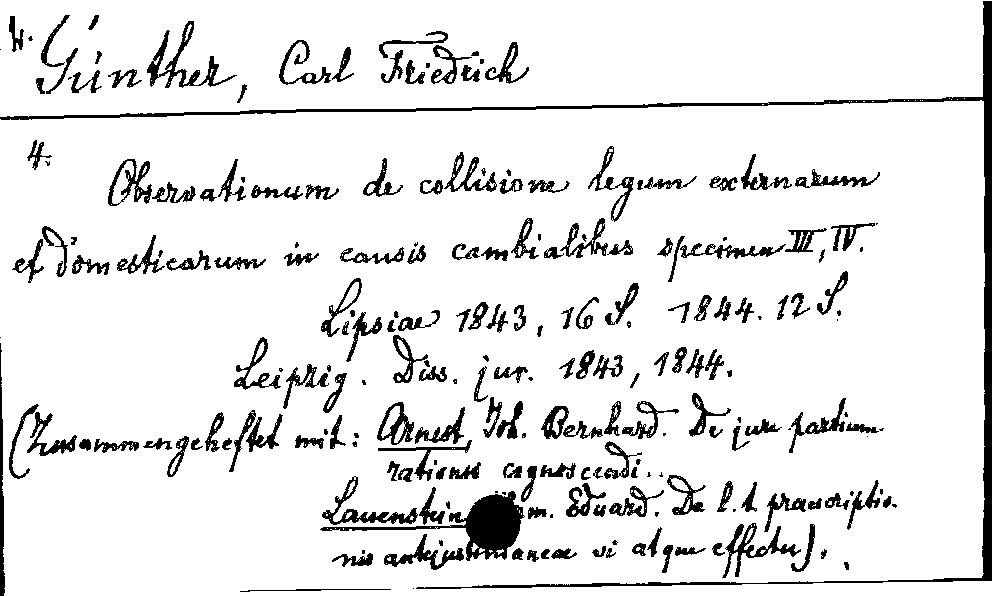 4. Günther, Carl Friedrich
4.
Observationum de collisione legum externarum
et domesticarum in causis cambialibus specimen III, IV.
Lipsiae 1843, 16 S. 1844. 12 S.
Leipzig. Diss. jur. 1843, 1844.
(Zusammengeheftet mit: Arnest, Joh. Bernhard. De jure partium
rationes cognoscendi..
Lauenstein, Eduard. De l. t. praescriptio-
nis antejustinianeae vi atque effectu).